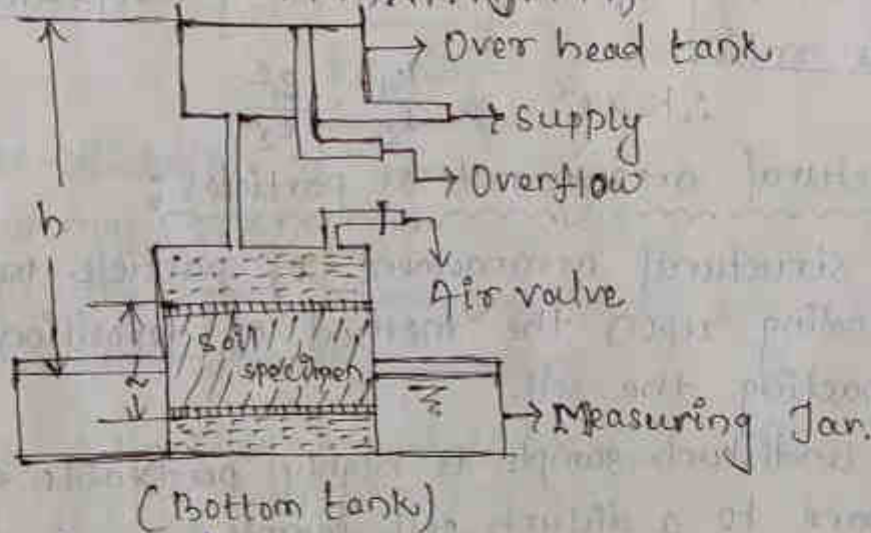 Over head tank
Supply
Overflow
h
Air valve
soil
specimen
Measuring Jar.
(Bottom tank)